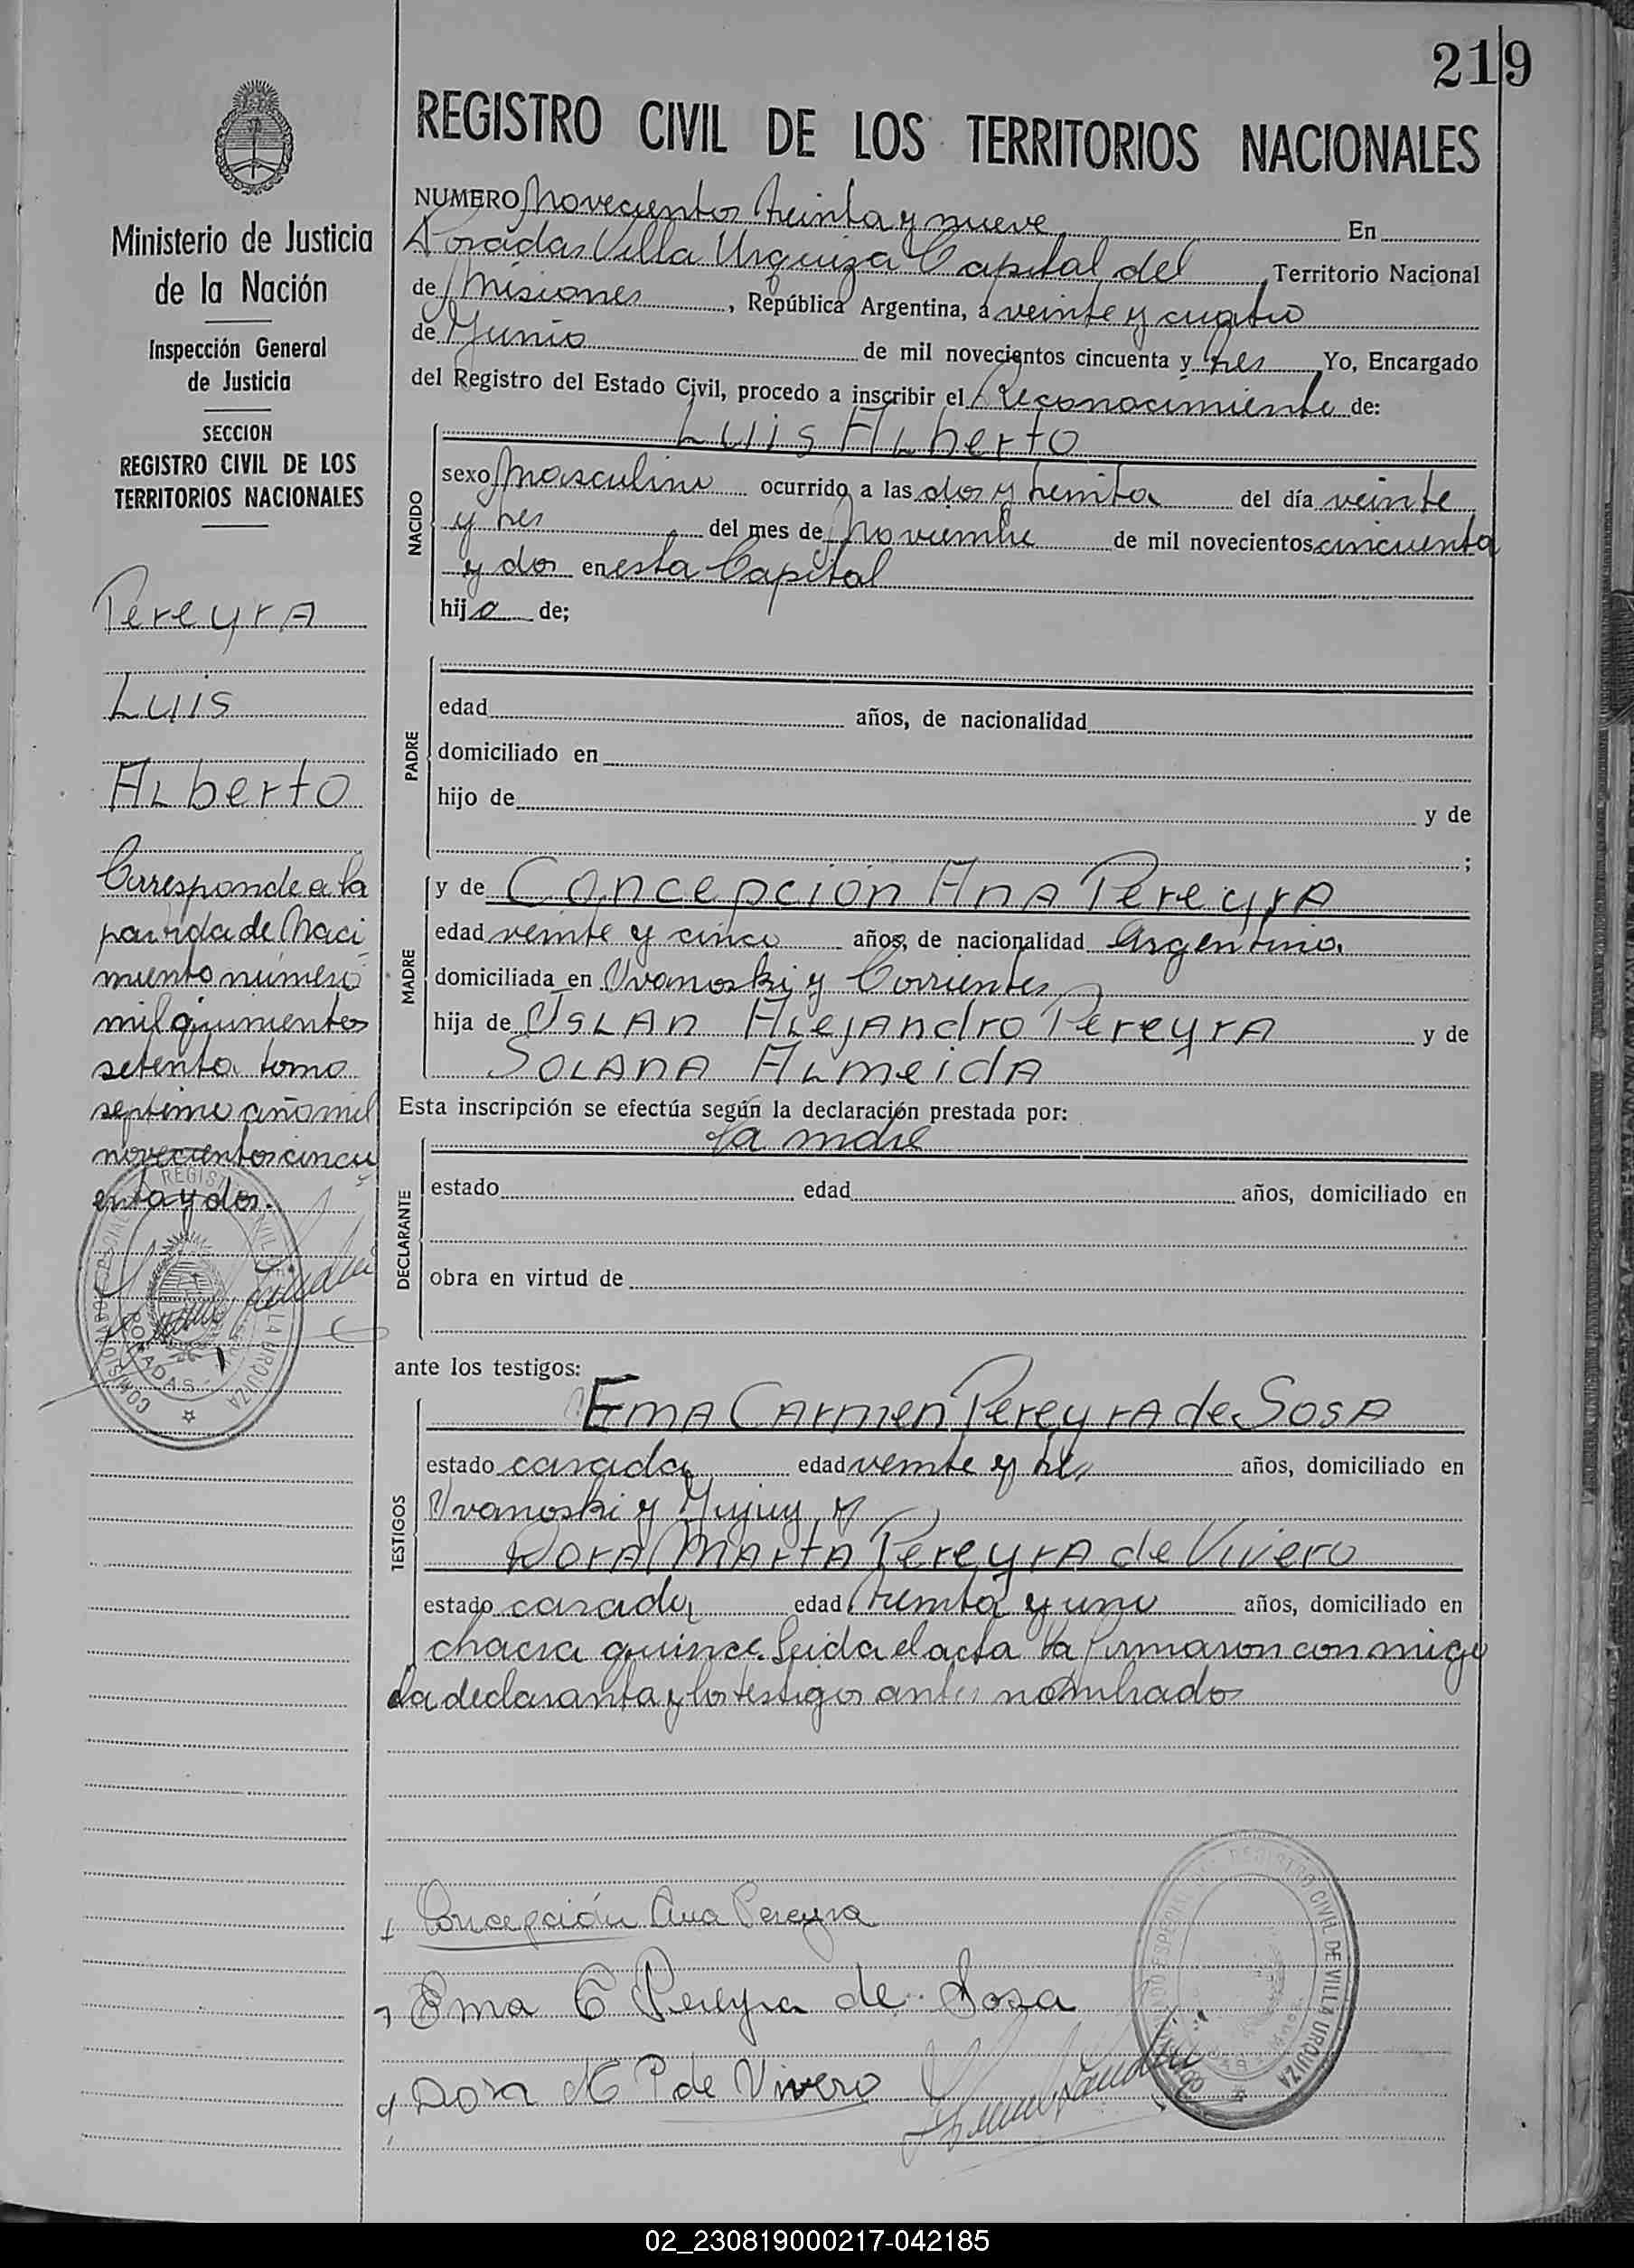 219
REGISTRO CIVIL DE LOS TERRITORIOS NACIONALES
Ministerio de Justicia
de la Nación
Inspección General
de Justicia
SECCION
REGISTRO CIVIL DE LOS
TERRITORIOS NACIONALES
Pereyra
Luis
Alberto
Corresponde a la
partida de Naci
miento número
mil quinientos
setenta tomo
septimo año mil
novecientos cincu
enta y dos.
NUMERO Novecientos treinta y nueve En
Posadas Villa Urquiza Capital del Territorio Nacional
de Misiones, República Argentina, a veinte y cuatro
de Junio de mil novecientos cincuenta y tres Yo, Encargado
del Registro del Estado Civil, procedo a inscribir el Reconocimiento de:
Luis Alberto
NACIDO
sexo masculino ocurrido a las dos y treinta del día veinte
y tres del mes de Noviembre de mil novecientos cincuenta
y dos en esta Capital
hijo de;
PADRE
edad años, de nacionalidad
domiciliado en
hijo de y de
;
MADRE
y de Concepción Ana Pereyra
edad veinte y cinco años, de nacionalidad Argentina
domiciliada en Yvanoski y Corrientes
hija de Alejandro Pereyra y de
Solana Almeida
Esta inscripción se efectúa según la declaración prestada por:
la madre
DECLARANTE
estado edad años, domiciliado en
obra en virtud de
ante los testigos:
TESTIGOS
Ema Carmen Pereyra de Sosa
estado casada edad veinte y tres años, domiciliado en
Yvanoski y Jujuy y
Dora Marta Pereyra de Vivero
estado casada edad treinta y uno años, domiciliado en
chacra quince. Leida el acta la firmaron con migo
la declaranta y los testigos antes nombrados
Concepción Ana Pereyra
Ema C Pereyra de Sosa
Dora M P de Vivero
REGISTRO CIVIL DE VILLA URQUIZA
POSADAS
02_230819000217-042185